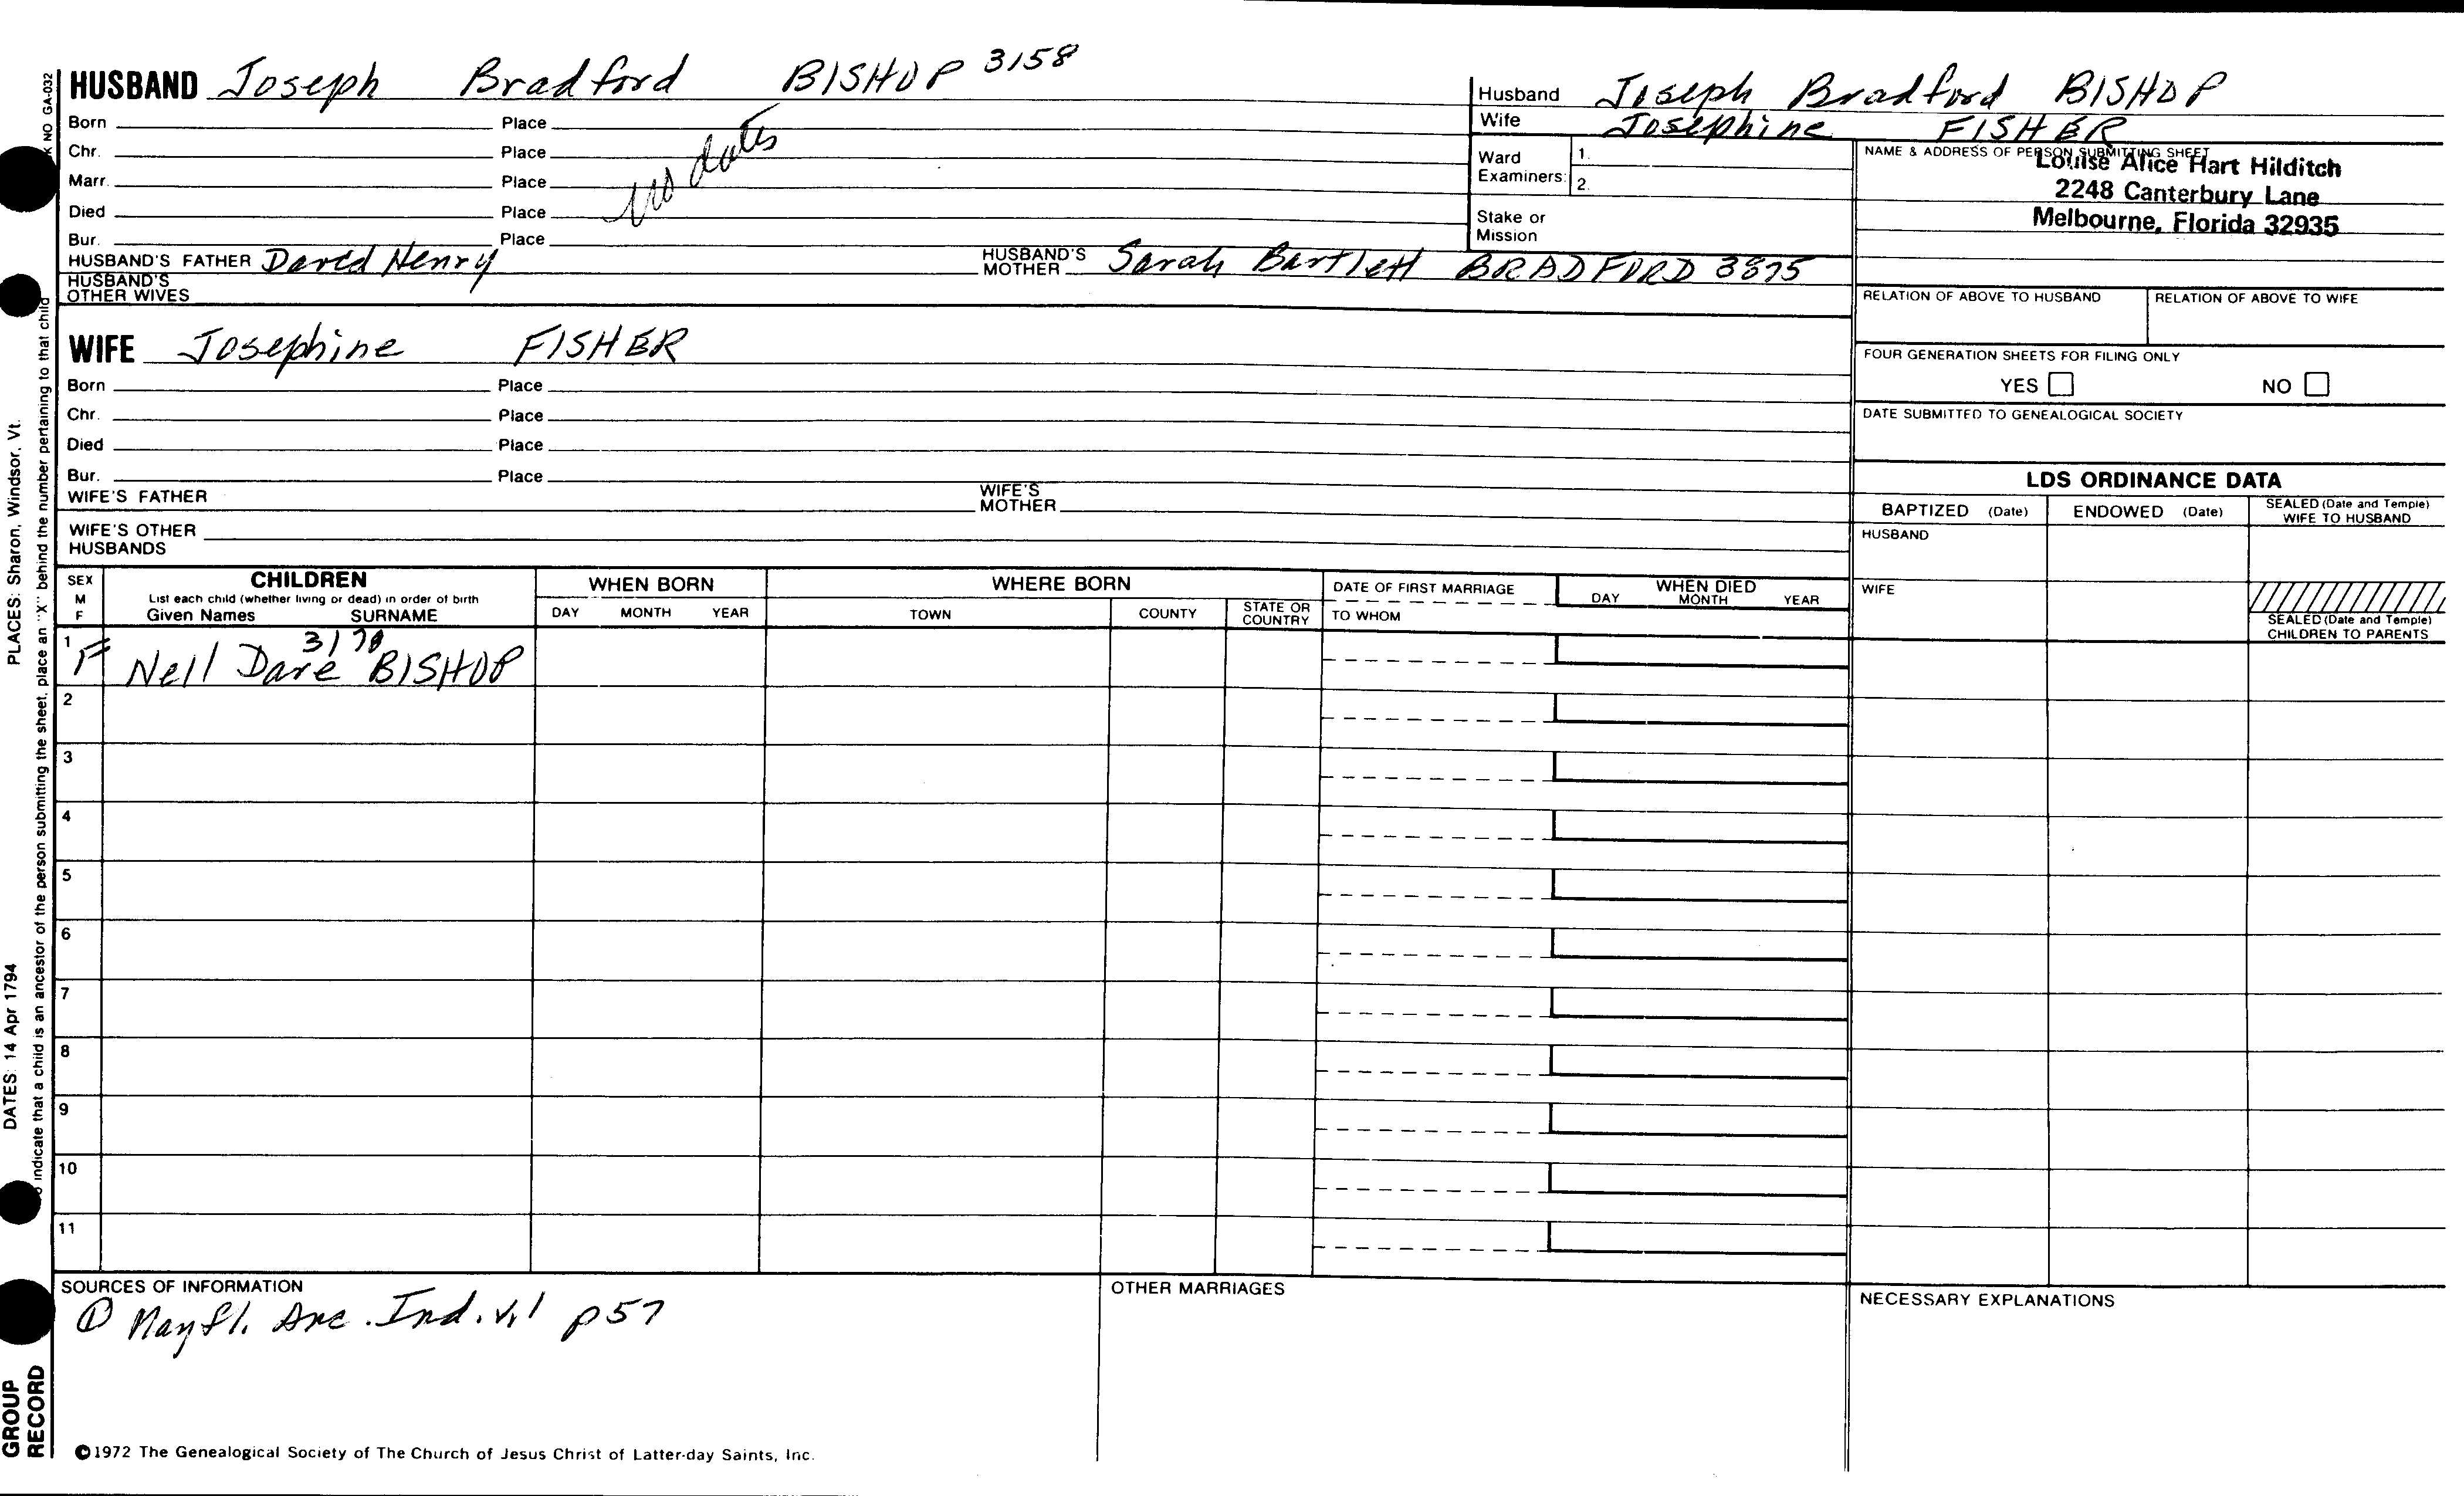 HUSBAND Joseph Bradford BISHOP 3158
Born Place
Chr. Place
Marr. Place
Died Place
Bur. Place
no dates
HUSBAND'S FATHER David Henry HUSBAND'S MOTHER Sarah Bartlett BRADFORD 3875
HUSBAND'S OTHER WIVES
WIFE Josephine FISHER
Born Place
Chr. Place
Died Place
Bur. Place
WIFE'S FATHER WIFE'S MOTHER
WIFE'S OTHER HUSBANDS
Husband Joseph Bradford BISHOP
Wife Josephine FISHER
Ward Examiners: 1.
2.
Stake or Mission
NAME & ADDRESS OF PERSON SUBMITTING SHEET
Louise Alice Hart Hilditch
2248 Canterbury Lane
Melbourne, Florida 32935
RELATION OF ABOVE TO HUSBAND RELATION OF ABOVE TO WIFE
FOUR GENERATION SHEETS FOR FILING ONLY
YES NO
DATE SUBMITTED TO GENEALOGICAL SOCIETY
LDS ORDINANCE DATA
BAPTIZED (Date) ENDOWED (Date) SEALED (Date and Temple) WIFE TO HUSBAND
HUSBAND
WIFE
SEALED (Date and Temple)
CHILDREN TO PARENTS
SEX M F
CHILDREN
List each child (whether living or dead) in order of birth
Given Names SURNAME
WHEN BORN
DAY MONTH YEAR
WHERE BORN
TOWN COUNTY STATE OR COUNTRY
DATE OF FIRST MARRIAGE
TO WHOM
WHEN DIED
DAY MONTH YEAR
3170
1 F Nell Dare BISHOP
2
3
4
5
6
7
8
9
10
11
SOURCES OF INFORMATION
① Mayfl. Anc. Ind. v.1 p57
OTHER MARRIAGES
NECESSARY EXPLANATIONS
©1972 The Genealogical Society of The Church of Jesus Christ of Latter-day Saints, Inc.
NO GA-032
PLACES: Sharon, Windsor, Vt.
DATES: 14 Apr 1794
indicate that a child is an ancestor of the person submitting the sheet, place an "X" behind the number pertaining to that child
GROUP
RECORD